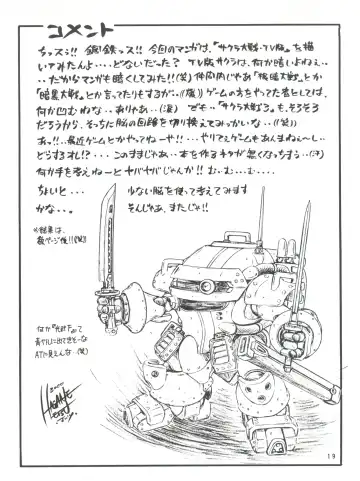 コメント
ちッスぅ!! 鋼鉄ッス!! 今回のマンガは、『サクラ大戦・TV版』を描
いてみたんよ‥‥どないだった? TV版サクラは、何か暗いよねぇ‥
‥だからマンガも暗くしてみた!!(笑) 仲間内じゃあ『桜暗大戦』とか
『暗黒大戦』とか言ってたりもするが‥(爆)) ゲームの方をやってた者としては、
何か凹むねな‥ありゃあ‥(涙) でも‥『サクラ大戦3』も、そろそろ
だろうから、そっちに脳の回路を切り換えてみっかいな‥((笑))
あっ!!‥最近ゲームとかやってねーや!!‥‥やりてぇゲームもあんまねぇ〜し‥
どうするオレ!?‥‥このままじゃあ‥本を作るネタが無くなっちまう‥(汗)
何か手を考えねーとヤバヤバじゃんか!! む‥む‥む‥‥
ちょいと‥‥ 少ない脳を使って考えてみます
かな‥。 そんじゃあ、またじゃ!!
※結果は、
数ページ後!!(笑)
なんか『光武F2』って
青の
ATに見えんな‥(笑)
2000
HAGANE
19